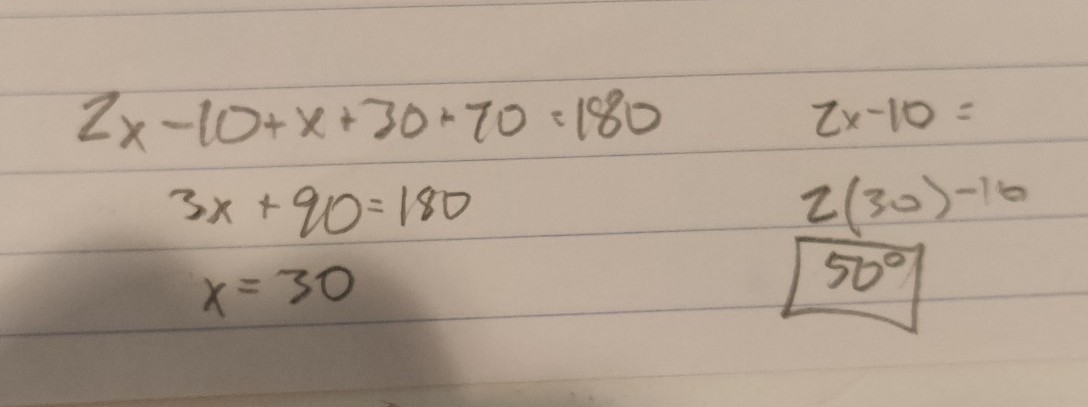 2x-10+x+30+70=180
3x+90=180
x=30
2x-10=
2(30)-10
50°